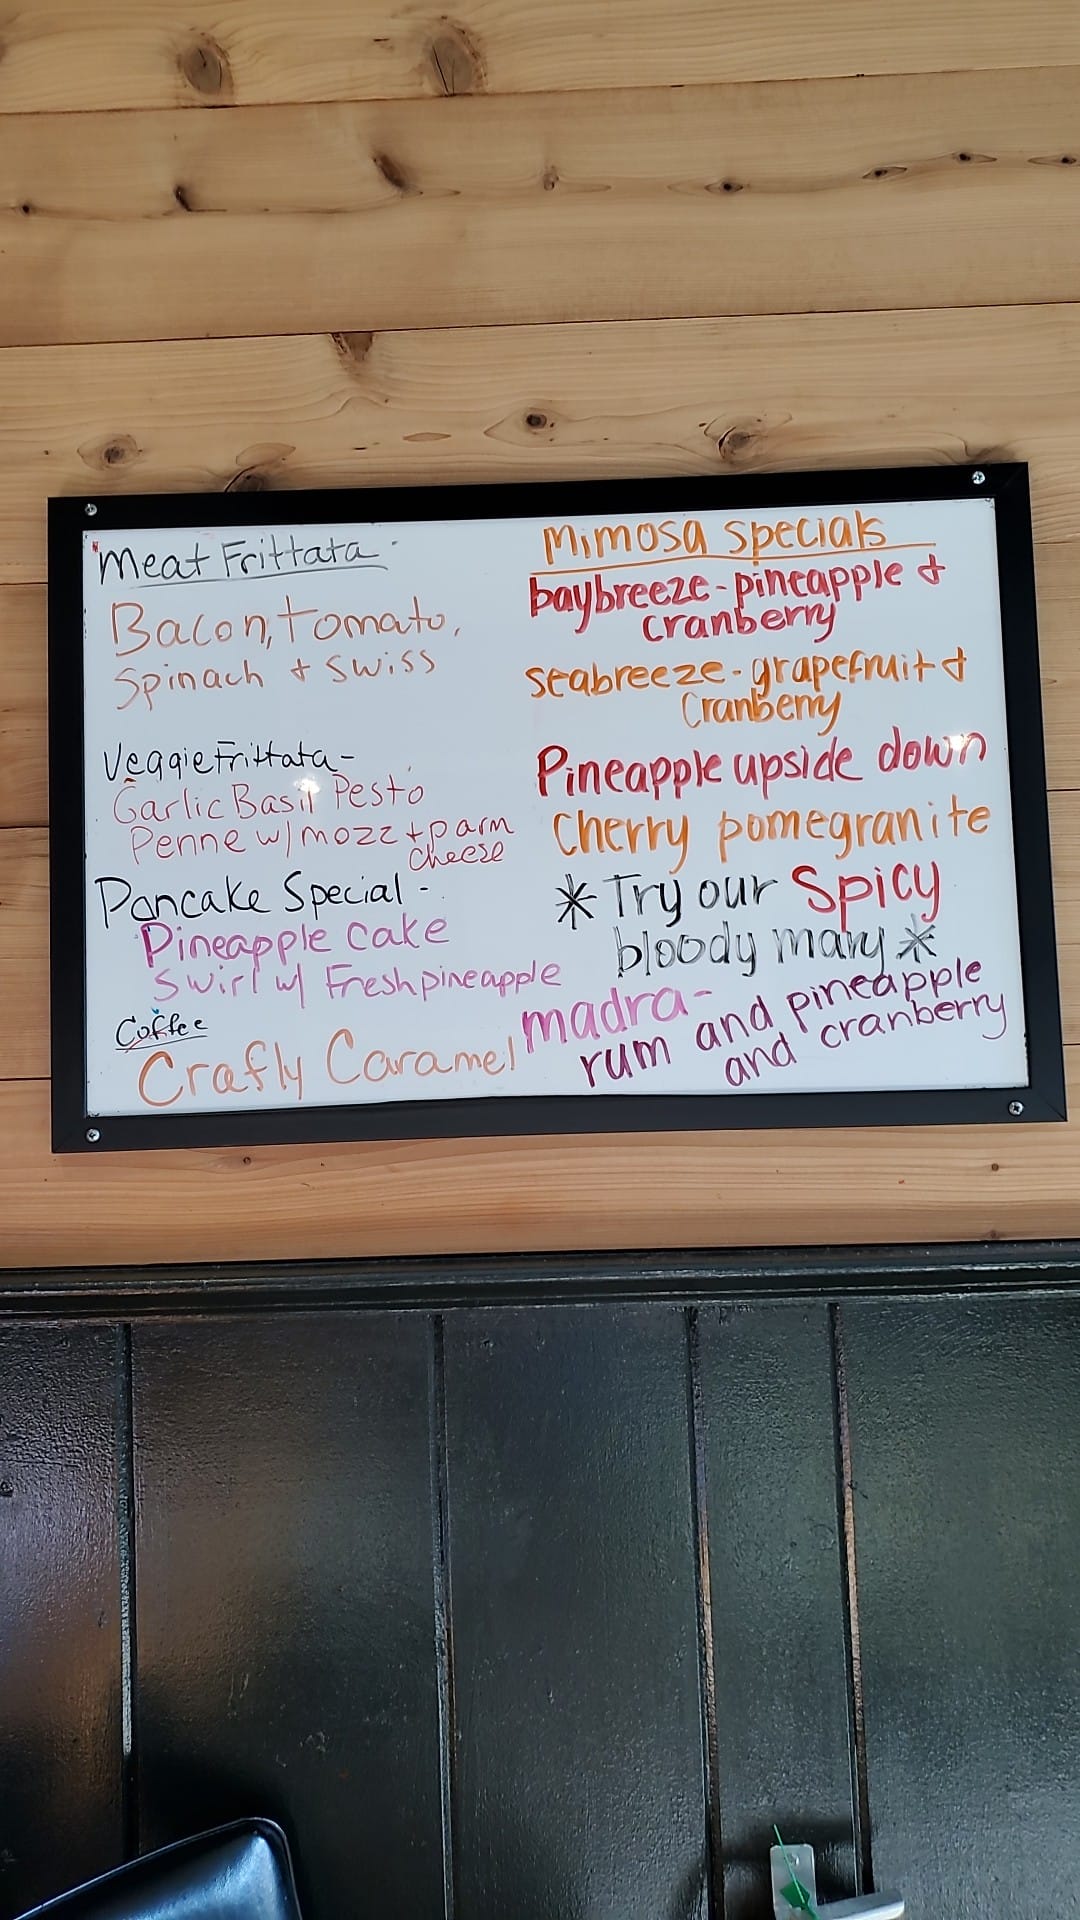 Meat Frittata-
Bacon, Tomato,
Spinach + Swiss
Veggie Frittata-
Garlic Basil Pesto
Penne w/ mozz + parm
cheese
Pancake Special -
Pineapple cake
Swirl w/ Fresh pineapple
Coffee
Crafly Caramel
Mimosa specials
baybreeze - pineapple &
cranberry
seabreeze - grapefruit &
Cranberry
Pineapple upside down
Cherry pomegranite
* Try our Spicy
bloody mary *
madra-
rum and pineapple
and cranberry